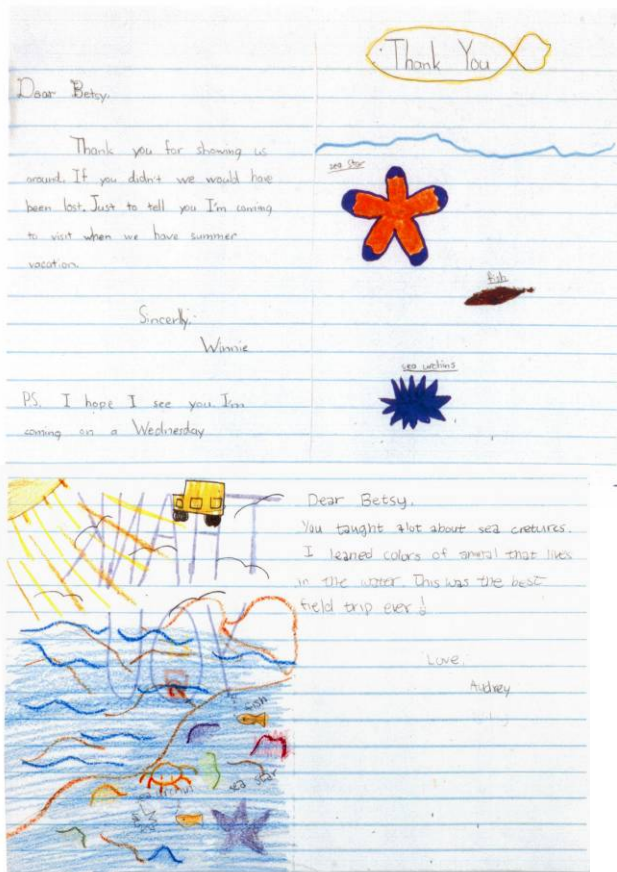 Thank You
Dear Betsy,
Thank you for showing us
around. If you didn't we would have
been lost. Just to tell you I'm coming
to visit when we have summer
vacation.
Sincerly,
Winnie
P.S. I hope I see you I'm
coming on a Wednesday
sea star
fish
sea urchins
THANK
YOU
fish
sea star
Dear Betsy,
You taught alot about sea cretures.
I leaned colors of animal that lives
in the water. This was the best
field trip ever!
Love,
Audrey